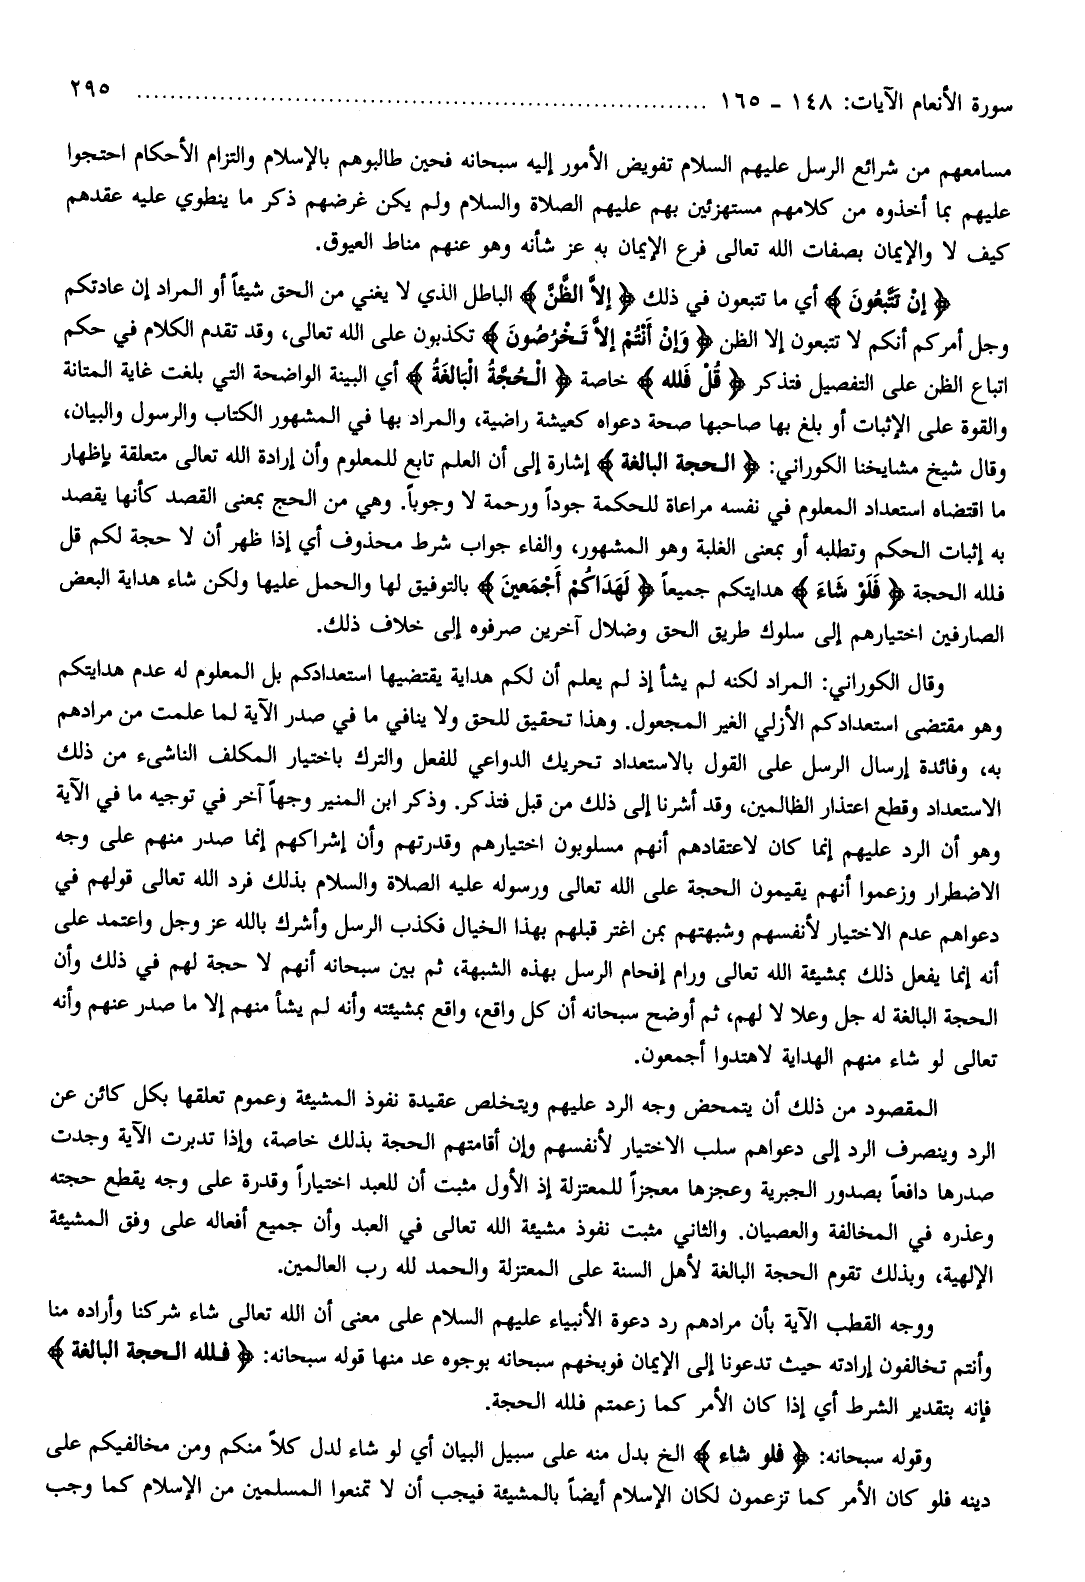 سورة الأنعام الآيات: ١٤٨ - ١٦٥ ........................................................................ ٢٩٥
مسامعهم من شرائع الرسل عليهم السلام تفويض الأمور إليه سبحانه فحين طالبوهم بالإسلام والتزام الأحكام احتجوا
عليهم بما أخذوه من كلامهم مستهزئين بهم عليهم الصلاة والسلام ولم يكن غرضهم ذكر ما ينطوي عليه عقدهم
كيف لا والإيمان بصفات الله تعالى فرع الإيمان به عز شأنه وهو عنهم مناط العيوق.
﴿إنْ تَتَّبعُونَ﴾ أي ما تتبعون في ذلك ﴿إلاَّ الظَّنَّ﴾ الباطل الذي لا يغني من الحق شيئاً أو المراد إن عادتكم
وجل أمركم أنكم لا تتبعون إلا الظن ﴿وَإنْ أَنْتُمْ إلاَّ تَخْرُصُونَ﴾ تكذبون على الله تعالى، وقد تقدم الكلام في حكم
اتباع الظن على التفصيل فتذكر ﴿قُلْ فَلله﴾ خاصة ﴿الْحُجَّةُ الْبَالغَةُ﴾ أي البينة الواضحة التي بلغت غاية المتانة
والقوة على الإثبات أو بلغ بها صاحبها صحة دعواه كعيشة راضية، والمراد بها في المشهور الكتاب والرسول والبيان،
وقال شيخ مشايخنا الكوراني: ﴿الحجة البالغة﴾ إشارة إلى أن العلم تابع للمعلوم وأن إرادة الله تعالى متعلقة بإظهار
ما اقتضاه استعداد المعلوم في نفسه مراعاة للحكمة جوداً ورحمة لا وجوباً. وهي من الحج بمعنى القصد كأنها يقصد
به إثبات الحكم وتطلبه أو بمعنى الغلبة وهو المشهور، والفاء جواب شرط محذوف أي إذا ظهر أن لا حجة لكم قل
فلله الحجة ﴿فَلَوْ شَاءَ﴾ هدايتكم جميعاً ﴿لَهَدَاكُمْ أَجْمَعينَ﴾ بالتوفيق لها والحمل عليها ولكن شاء هداية البعض
الصارفين اختيارهم إلى سلوك طريق الحق وضلال آخرين صرفوه إلى خلاف ذلك.
وقال الكوراني: المراد لكنه لم يشأ إذ لم يعلم أن لكم هداية يقتضيها استعدادكم بل المعلوم له عدم هدايتكم
وهو مقتضى استعدادكم الأزلي الغير المجعول. وهذا تحقيق للحق ولا ينافي ما في صدر الآية لما علمت من مرادهم
به، وفائدة إرسال الرسل على القول بالاستعداد تحريك الدواعي للفعل والترك باختيار المكلف الناشىء من ذلك
الاستعداد وقطع اعتذار الظالمين، وقد أشرنا إلى ذلك من قبل فتذكر. وذكر ابن المنير وجهاً آخر في توجيه ما في الآية
وهو أن الرد عليهم إنما كان لاعتقادهم أنهم مسلوبون اختيارهم وقدرتهم وأن إشراكهم إنما صدر منهم على وجه
الاضطرار وزعموا أنهم يقيمون الحجة على الله تعالى ورسوله عليه الصلاة والسلام بذلك فرد الله تعالى قولهم في
دعواهم عدم الاختيار لأنفسهم وشبهتهم بمن اغتر قبلهم بهذا الخيال فكذب الرسل وأشرك بالله عز وجل واعتمد على
أنه إنما يفعل ذلك بمشيئة الله تعالى ورام إفحام الرسل بهذه الشبهة، ثم بين سبحانه أنهم لا حجة لهم في ذلك وأن
الحجة البالغة له جل وعلا لا لهم، ثم أوضح سبحانه أن كل واقع، واقع بمشيئته وأنه لم يشأ منهم إلا ما صدر عنهم وأنه
تعالى لو شاء منهم الهداية لاهتدوا أجمعون.
المقصود من ذلك أن يتمحض وجه الرد عليهم ويتخلص عقيدة نفوذ المشيئة وعموم تعلقها بكل كائن عن
الرد وينصرف الرد إلى دعواهم سلب الاختيار لأنفسهم وإن أقامتهم الحجة بذلك خاصة، وإذا تدبرت الآية وجدت
صدرها دافعاً بصدور الجبرية وعجزها معجزاً للمعتزلة إذ الأول مثبت أن للعبد اختياراً وقدرة على وجه يقطع حجته
وعذره في المخالفة والعصيان. والثاني مثبت نفوذ مشيئة الله تعالى في العبد وأن جميع أفعاله على وفق المشيئة
الإلهية، وبذلك تقوم الحجة البالغة لأهل السنة على المعتزلة والحمد لله رب العالمين.
ووجه القطب الآية بأن مرادهم رد دعوة الأنبياء عليهم السلام على معنى أن الله تعالى شاء شركنا وأراده منا
وأنتم تخالفون إرادته حيث تدعونا إلى الإيمان فوبخهم سبحانه بوجوه عد منها قوله سبحانه: ﴿فلله الحجة البالغة﴾
فإنه بتقدير الشرط أي إذا كان الأمر كما زعمتم فلله الحجة.
وقوله سبحانه: ﴿فلو شاء﴾ الخ بدل منه على سبيل البيان أي لو شاء لدل كلاً منكم ومن مخالفيكم على
دينه فلو كان الأمر كما تزعمون لكان الإسلام أيضاً بالمشيئة فيجب أن لا تمنعوا المسلمين من الإسلام كما وجب